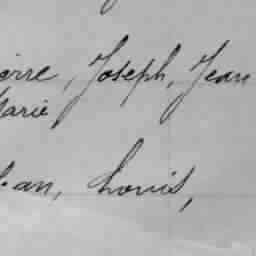 erre, Joseph, Jean
Marie
ean, Louis,